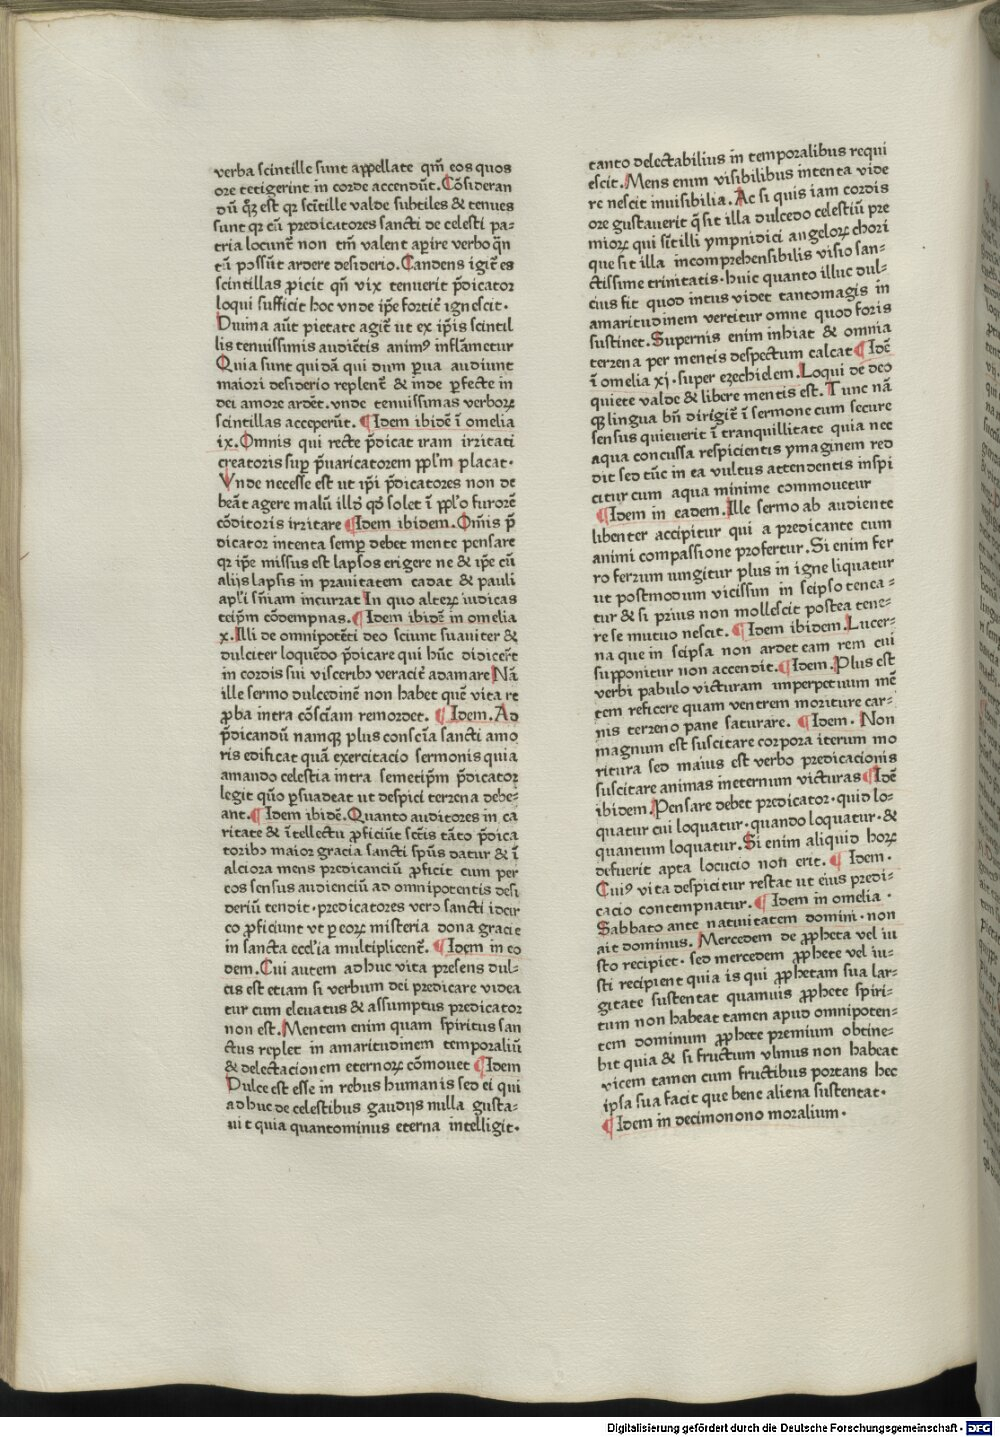 verba scintille sunt appellate qm̄ eos quos
ore tetigerint in corde accendūt. Cōsideran
dū q̄ꝫ est qꝛ scītille valde subtiles & tenues
sunt qꝛ cū predicatores sancti de celesti pa-
tria locunt̄ non tm̄ valent apīre verbo qn̄
tū possūt ardere desiderio. Candens igit̄ es
scintillas ꝓicit qn̄ vix tenuerit p̄dicator
loqui sufficit hoc vnde ip̄e fortit̄ ignescit·
Diuina aūt pietate agit̄ ut ex ip̄is scintil
lis tenuissimis audiētis animꝰ inflāmetur
Quia sunt quidā qui dum ꝑua audiunt
maiori desiderio replent̄ & inde ꝑfecte in
dei amore ardēt. vnde tenuissimas verboꝝ
scintillas acceperūt. ¶Idem ibidē ī omelia
ix. Omnis qui recte p̄dicat iram irritati
creatoris suꝑ p̄uaricatorem ppl̄m placat·
Vnde necesse est ut ip̄i p̄dicatores non de
beāt agere malū illd̄ qd̄ solet ī ppl̄o furorē
cōditoris irritare ¶Idem ibidem. Om̄is p̄
dicator intenta semꝑ debet mente pensare
qꝛ ip̄e missus est lapsos erigere ne & ip̄e cū
alijs lapsis in prauitatem cadat & pauli
apl̄i sn̄iam incurrat In quo alteꝝ iudicas
teip̄m cōdempnas. ¶Idem ibidē in omelia
x. Illi de omnipotēti deo sciunt suauiter &
dulciter loquēdo p̄dicare qui hūc didicer̄t
in cordis sui visceribꝫ veracit̄ adamare Nā
ille sermo dulcedinē non habet quē vita re
ꝓba intra cōsciam remordet. ¶ Idem. Ad
p̄dicandū namqꝫ plus conscīa sancti amo
ris edificat quā exercitacio sermonis quia
amando celestia intra semetip̄m p̄dicator
legit quō ꝑsuadeat ut despici terrena debe-
ant. ¶ Idem ibidē. Quanto auditores in ca
ritate & ītellectu ꝓficiūt sctīs tāto p̄dica
toribꝫ maior gracia sancti spūs datur & ī
alciora mens predicanciū ꝓficit cum per
eos sensus audienciū ad omnipotentis desi
deriū tendit· predicatores vero sancti idcir
co ꝓficiunt vt ꝑ eoꝝ misteria dona gracie
in sancta eccl̄ia multiplicent̄. ¶Idem in eo
dem. Cui autem adhuc vita presens dul-
cis est etiam si verbum dei predicare videa
tur cum eleuatus & assumptus predicator
non est. Mentem enim quam spiritus san
ctus replet in amaritudinem temporaliū
& delectacionem eternoꝝ cōmouet ¶Idem
Dulce est esse in rebus humanis sed ei qui
adhuc de celestibus gaudijs nulla gusta-
uit quia quantominus eterna intelligit·
tanto delectabilius in temporalibus requi
escit. Mens enim visibilibus intenta vide
re nescit inuisibilia. Ac si quis iam cordis
ore gustauerit q̄ sit illa dulcedo celestiū pre
mioꝝ qui sīt illi ympnidici angeloꝝ chori
que sit illa incomprehensibilis visio san-
ctissime trinitatis· huic quanto illuc dul-
cius fit quod intus videt tantomagis in
amaritudinem vertitur omne quod foris
sustinet. Supernis enim inhiat & omnia
terrena per mentis despectum calcat ¶ Idē
ī omelia xj· super ezechielem. Loqui de deo
quiete valde & libere mentis est. Tunc nā
qꝫ lingua bn̄ dirigit̄ ī sermone cum secure
sensus quieuerit ī tranquillitate quia nec
aqua concussa respicientis ymaginem red
dit sed tūc in ea vultus attendentis inspi
citur cum aqua minime commouetur
¶Idem in eadem. Ille sermo ab audiente
libenter accipitur qui a predicante cum
animi compassione profertur. Si enim fer
ro ferrum iungitur plus in igne liquatur
ut postmodum vicissim in seipso tenea-
tur & si prius non mollescit postea tene-
re se mutuo nescit. ¶Idem ibidem. Lucer-
na que in seipsa non ardet eam rem cui
supponitur non accendit. ¶Idem. Plus est
verbi pabulo victuram imperpetuum mē
tem reficere quam ventrem moriture car-
nis terreno pane saturare. ¶Idem· Non
magnum est suscitare corpora iterum mo
ritura sed maius est verbo predicacionis
suscitare animas ineternum victuras ¶Idē
ibidem. Pensare debet predicator· quid lo-
quatur cui loquatur· quando loquatur· &
quantum loquatur. Si enim aliquid hoꝝ
defuerit apta locucio non erit. ¶ Idem·
Cuiꝰ vita despicitur restat ut eius predi-
cacio contempnatur. ¶ Idem in omelia ·
Sabbato ante natiuitatem domini· non
ait dominus. Mercedem de ꝓpheta vel iu
sto recipiet· sed mercedem ꝓphete vel iu-
sti recipient quia is qui ꝓphetam sua lar-
gitate sustentat quamuis ꝓphete spiri-
tum non habeat tamen apud omnipoten-
tem dominum ꝓphete premium obtine-
bit quia & si fructum vlmus non habeat
vicem tamen cum fructibus portans hec
ipsa sua facit que bene aliena sustentat·
¶ Idem in decimonono moralium·
Digitalisierung gefördert durch die Deutsche Forschungsgemeinschaft - DFG